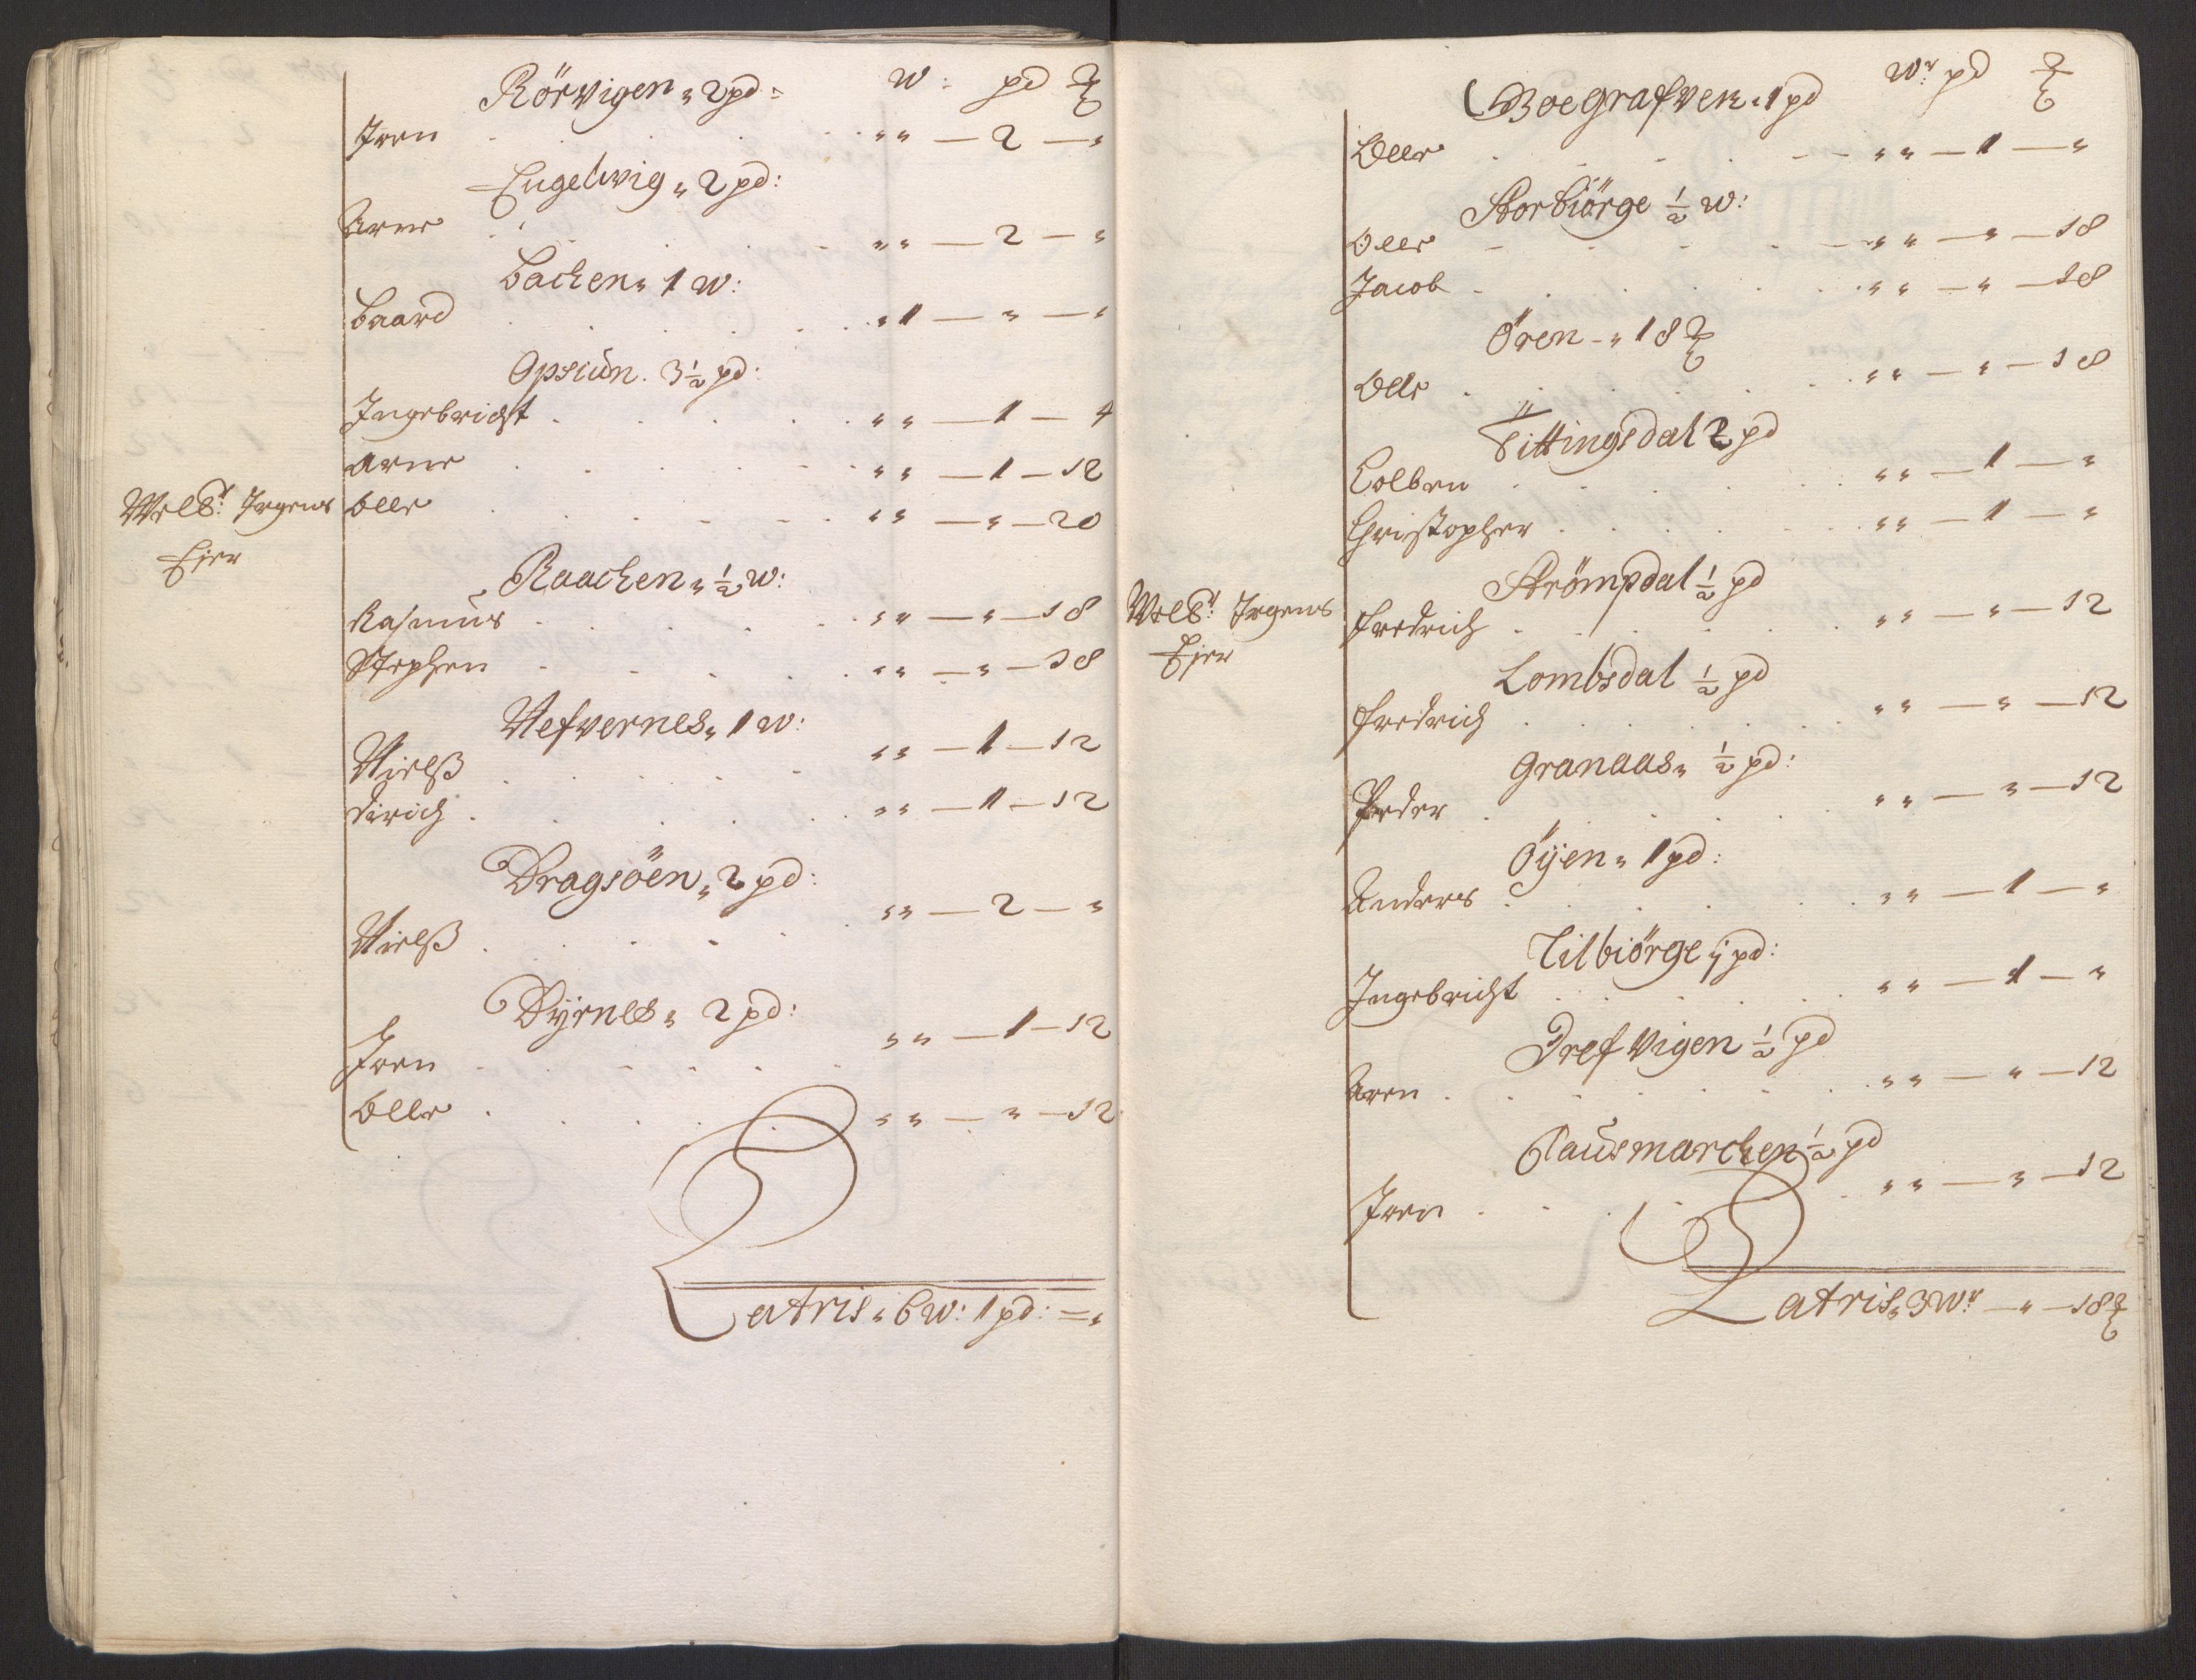 Rörvigen „ 2 pd : w : pd ℔
Iven „„ — 2 — „
Engelwig „ 2 pd :
Arne „„ — 2 — „
Backen „ 1 w :
Baard „1 — „ — „
Opsiun . 3½ pd :
Ingebricht „„ — 1 — 4
Arne „„ — 1 — 12
Welb: Irgens Olle „„ — „ — 20
Ejer
Raachen „ ½ w :
Rasmus „„ — „ — 18
Stephen „„ — „ — 18
Nefvernes „ 1 w :
Nielß „„ — 1 — 12
Dirich „„ — 1 — 12
Dragsöen „ 2 pd :
Nielß „„ — 2 — „
Dÿrnes „ 2 pd :
Joen „„ — 1 — 12
Olle „„ — „ — 12
Latris „ 6 w : 1 pd : = „
Boegrafven „ 1 pd wr pd ℔
Olle „„ — 1 — „
Storbiörge ½ w :
Olle „„ — „ — 18
Jacob „„ — „ — 18
Ören „ 18 ℔
Olle „„ — „ — 18
Tittingsdal 2 pd
Colben „„ — 1 — „
Christopher „„ — 1 — „
Strömpdal ½ pd
Welb: Irgens Fredrich „„ — „ — 12
Ejer
Lombsdal ½ pd
Fredrich „„ — „ — 12
Granaas „ ½ pd :
Peder „„ — „ — 12
Öÿen „ 1 pd :
Anders „„ — 1 — „
Tilbiörge j pd :
Ingebricht „„ — 1 — „
Drefvigen ½ pd
Aren „„ — „ — 12
Pausmarchen ½ pd
Iven „„ — „ — 12
Latris „ 3 wr — „ — 18 ℔